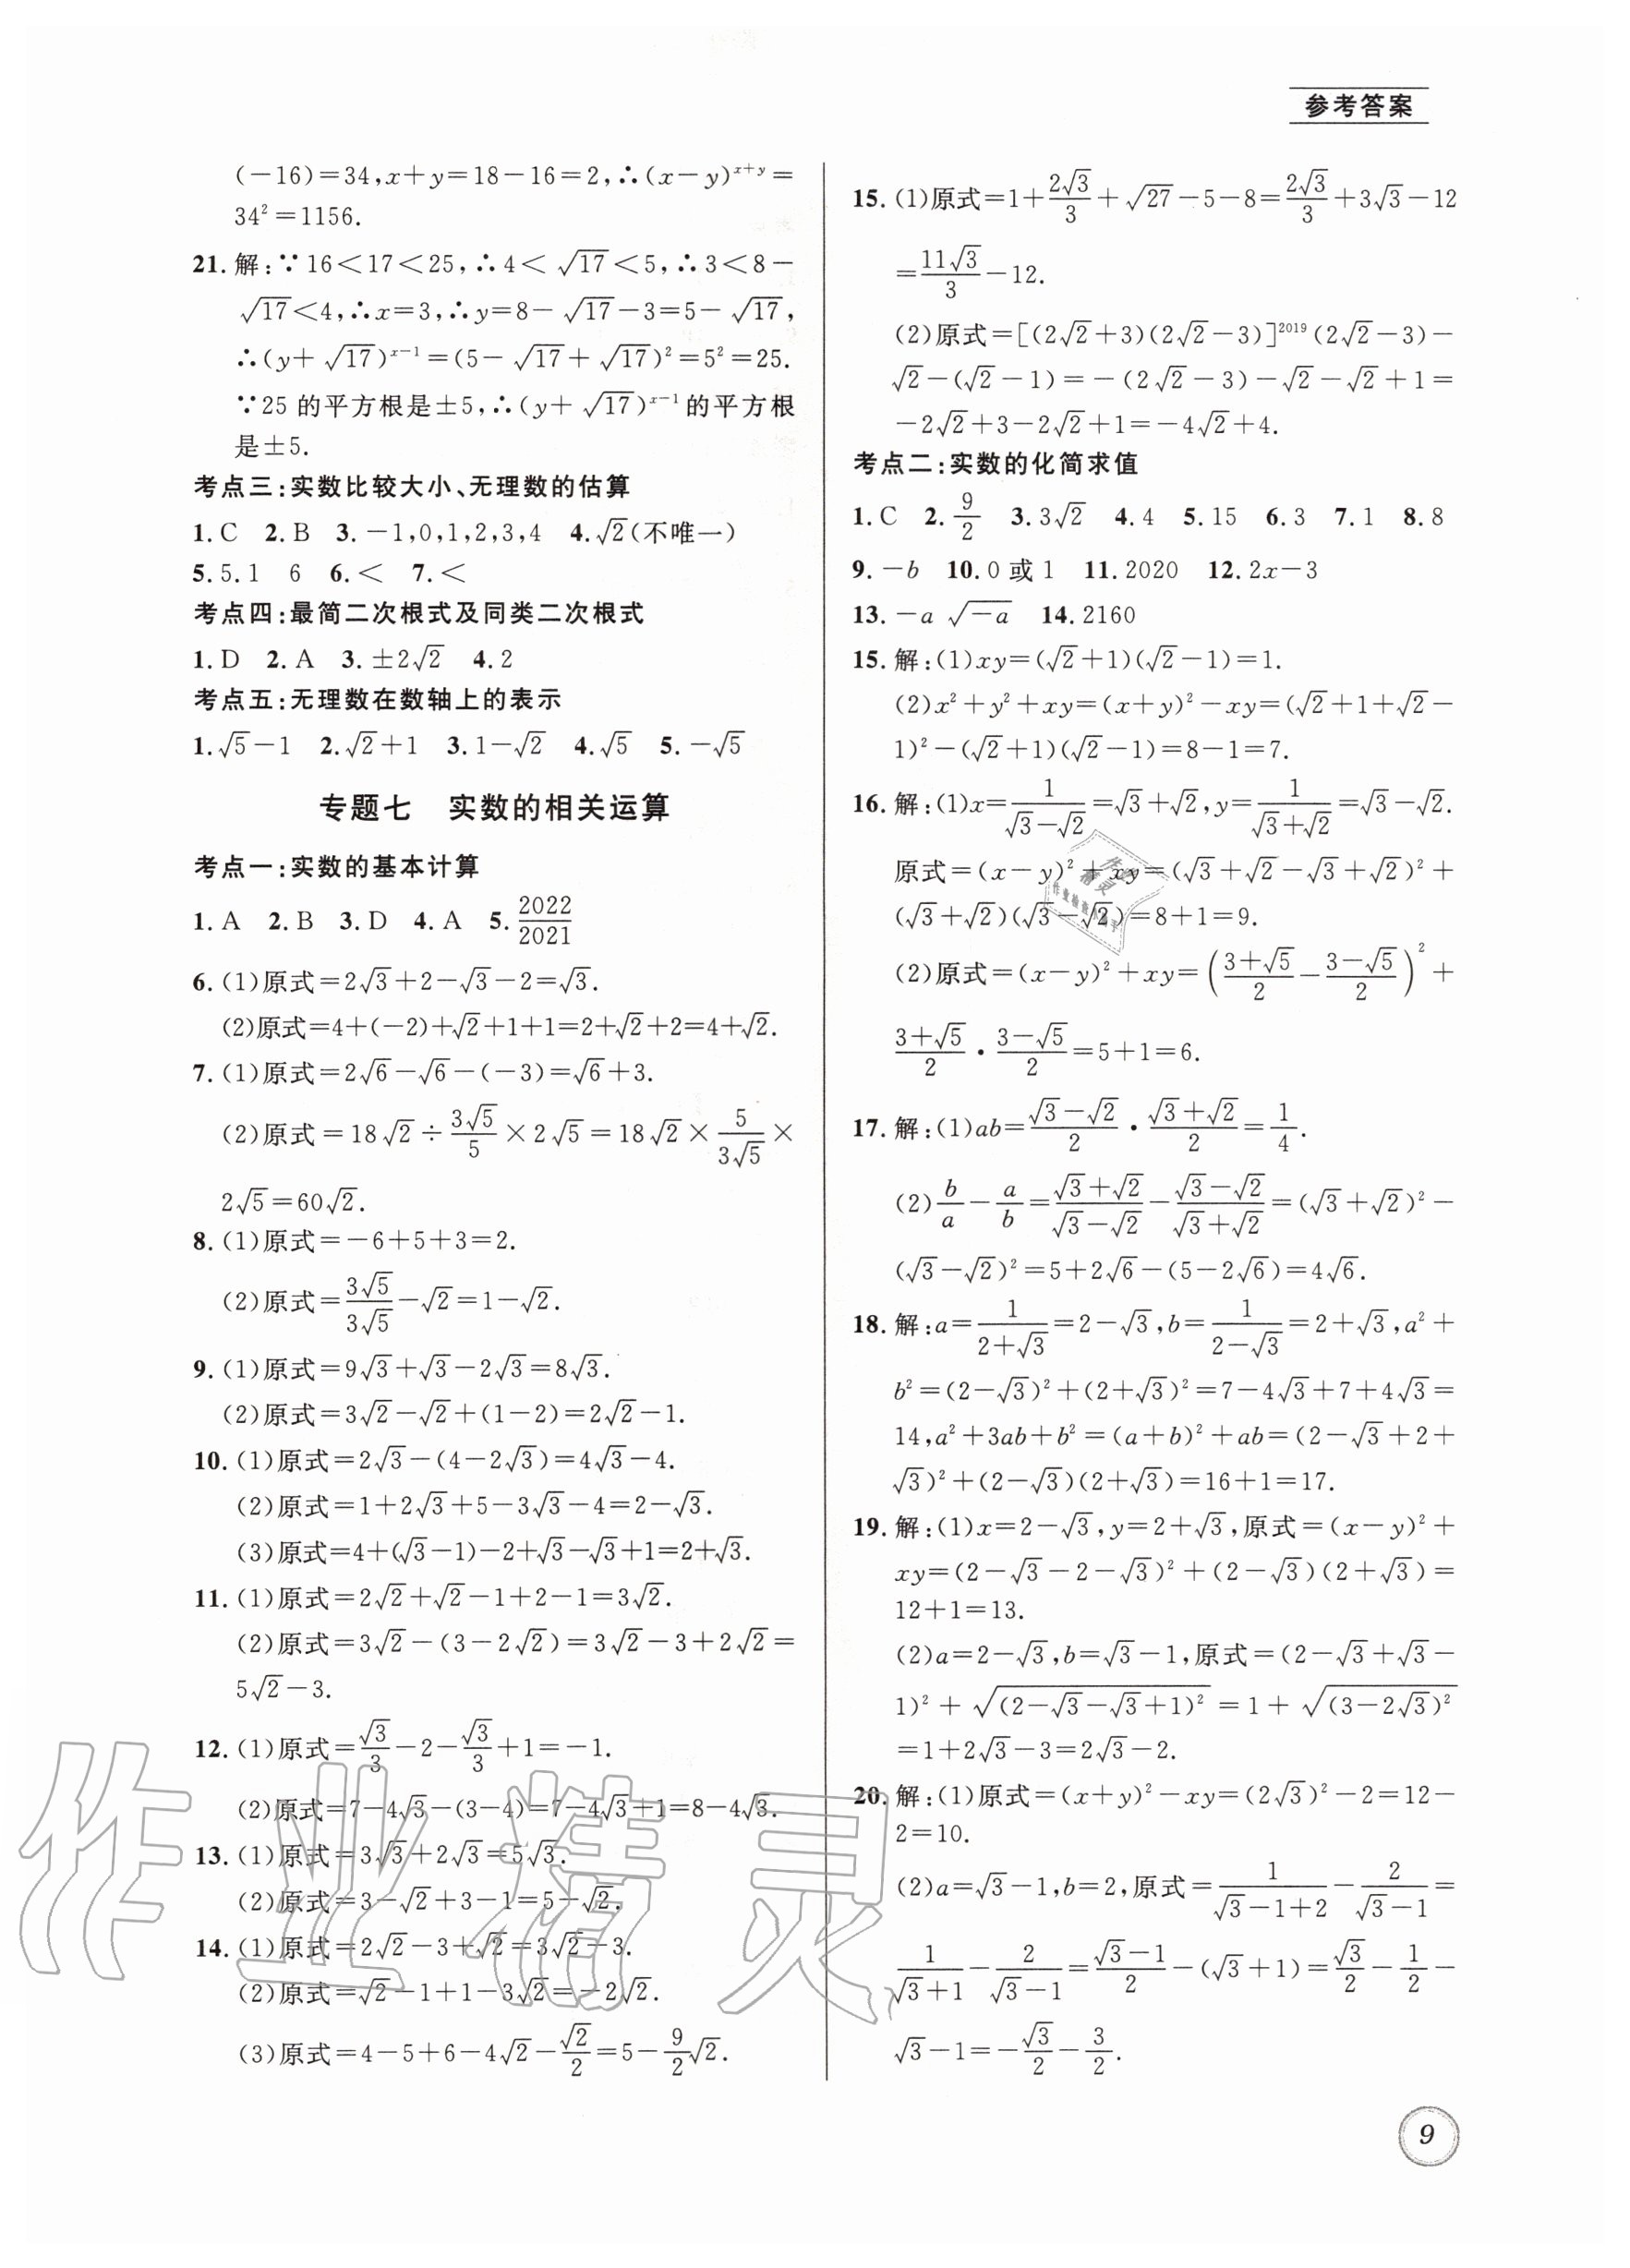 参考答案
(-16)=34,x+y=18-16=2,∴(x-y)^{x+y}=
34²=1156.
21.解:∵16<17<25,∴4<√17<5,∴3<8-
√17<4,∴x=3,∴y=8-√17-3=5-√17,
∴(y+√17)^{x-1}=(5-√17+√17)²=5²=25.
∵25的平方根是±5,∴(y+√17)^{x-1}的平方根
是±5.
考点三:实数比较大小、无理数的估算
1.C 2.B 3.-1,0,1,2,3,4 4.√2(不唯一)
5.5.1 6 6.< 7.<
考点四:最简二次根式及同类二次根式
1.D 2.A 3.±2√2 4.2
考点五:无理数在数轴上的表示
1.√5-1 2.√2+1 3.1-√2 4.√5 5.-√5
专题七 实数的相关运算
考点一:实数的基本计算
1.A 2.B 3.D 4.A 5.2022/2021
6.(1)原式=2√3+2-√3-2=√3.
(2)原式=4+(-2)+√2+1+1=2+√2+2=4+√2.
7.(1)原式=2√6-√6-(-3)=√6+3.
(2)原式=18√2÷3√5/5×2√5=18√2×5/(3√5)×
2√5=60√2.
8.(1)原式=-6+5+3=2.
(2)原式=3√5/(3√5)-√2=1-√2.
9.(1)原式=9√3+√3-2√3=8√3.
(2)原式=3√2-√2+(1-2)=2√2-1.
10.(1)原式=2√3-(4-2√3)=4√3-4.
(2)原式=1+2√3+5-3√3-4=2-√3.
(3)原式=4+(√3-1)-2+√3-√3+1=2+√3.
11.(1)原式=2√2+√2-1+2-1=3√2.
(2)原式=3√2-(3-2√2)=3√2-3+2√2=
5√2-3.
12.(1)原式=√3/3-2-√3/3+1=-1.
(2)原式=7-4√3-(3-4)=7-4√3+1=8-4√3.
13.(1)原式=3√3+2√3=5√3.
(2)原式=3-√2+3-1=5-√2.
14.(1)原式=2√2-3+√2=3√2-3.
(2)原式=√2-1+1-3√2=-2√2.
(3)原式=4-5+6-4√2-√2/2=5-9/2√2.
15.(1)原式=1+2√3/3+√27-5-8=2√3/3+3√3-12
=11√3/3-12.
(2)原式=[(2√2+3)(2√2-3)]^{2019}(2√2-3)-
√2-(√2-1)=-(2√2-3)-√2-√2+1=
-2√2+3-2√2+1=-4√2+4.
考点二:实数的化简求值
1.C 2.9/2 3.3√2 4.4 5.15 6.3 7.1 8.8
9.-b 10.0或1 11.2020 12.2x-3
13.-a√(-a) 14.2160
15.解:(1)xy=(√2+1)(√2-1)=1.
(2)x²+y²+xy=(x+y)²-xy=(√2+1+√2-
1)²-(√2+1)(√2-1)=8-1=7.
16.解:(1)x=1/(√3-√2)=√3+√2,y=1/(√3+√2)=√3-√2.
原式=(x-y)²+xy=(√3+√2-√3+√2)²+
(√3+√2)(√3-√2)=8+1=9.
(2)原式=(x-y)²+xy=((3+√5)/2-(3-√5)/2)²+
(3+√5)/2·(3-√5)/2=5+1=6.
17.解:(1)ab=(√3-√2)/2·(√3+√2)/2=1/4.
(2)b/a-a/b=(√3+√2)/(√3-√2)-(√3-√2)/(√3+√2)=(√3+√2)²-
(√3-√2)²=5+2√6-(5-2√6)=4√6.
18.解:a=1/(2+√3)=2-√3,b=1/(2-√3)=2+√3,a²+
b²=(2-√3)²+(2+√3)²=7-4√3+7+4√3=
14,a²+3ab+b²=(a+b)²+ab=(2-√3+2+
√3)²+(2-√3)(2+√3)=16+1=17.
19.解:(1)x=2-√3,y=2+√3,原式=(x-y)²+
xy=(2-√3-2-√3)²+(2-√3)(2+√3)=
12+1=13.
(2)a=2-√3,b=√3-1,原式=(2-√3+√3-
1)²+√((2-√3-√3+1)²)=1+√((3-2√3)²)
=1+2√3-3=2√3-2.
20.解:(1)原式=(x+y)²-xy=(2√3)²-2=12-
2=10.
(2)a=√3-1,b=2,原式=1/(√3-1+2)-2/(√3-1)=
1/(√3+1)-2/(√3-1)=(√3-1)/2-(√3+1)=√3/2-1/2-
√3-1=-√3/2-3/2.
作业精灵
9